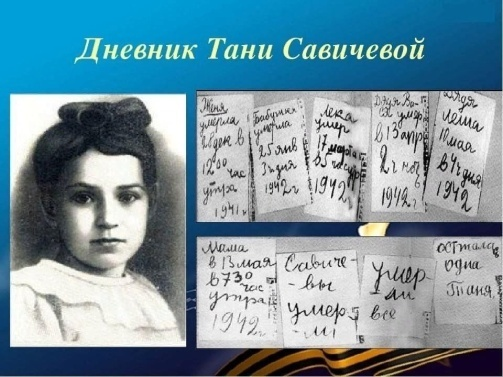 Дневник Тани Савичевой
Женя
умерла
28 дек в
12 00
час
утра
1941 г
Бабушка
умерла
25 янв
3 ч дня
1942 г
Лека
умер
17 марта
в 5 час утр
1942 г
Дядя Ва-
ся умер
в 13 апр
2 ч ноч
1942 г
Дядя
Леша
10 мая
в 4 ч дня
1942
Мама
в 13 мая
в 7 30
час
утра
1942 г
Савиче-
-вы
умер-
-ли
умер
-ли
все
осталась
одна
Таня